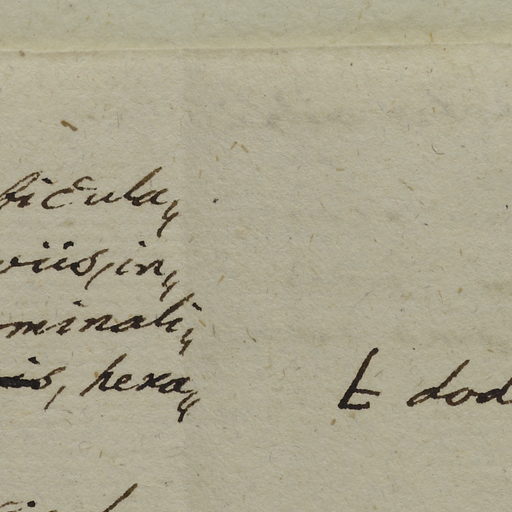 bicula„
viis, in„
minali„
is, hexa„
t dod